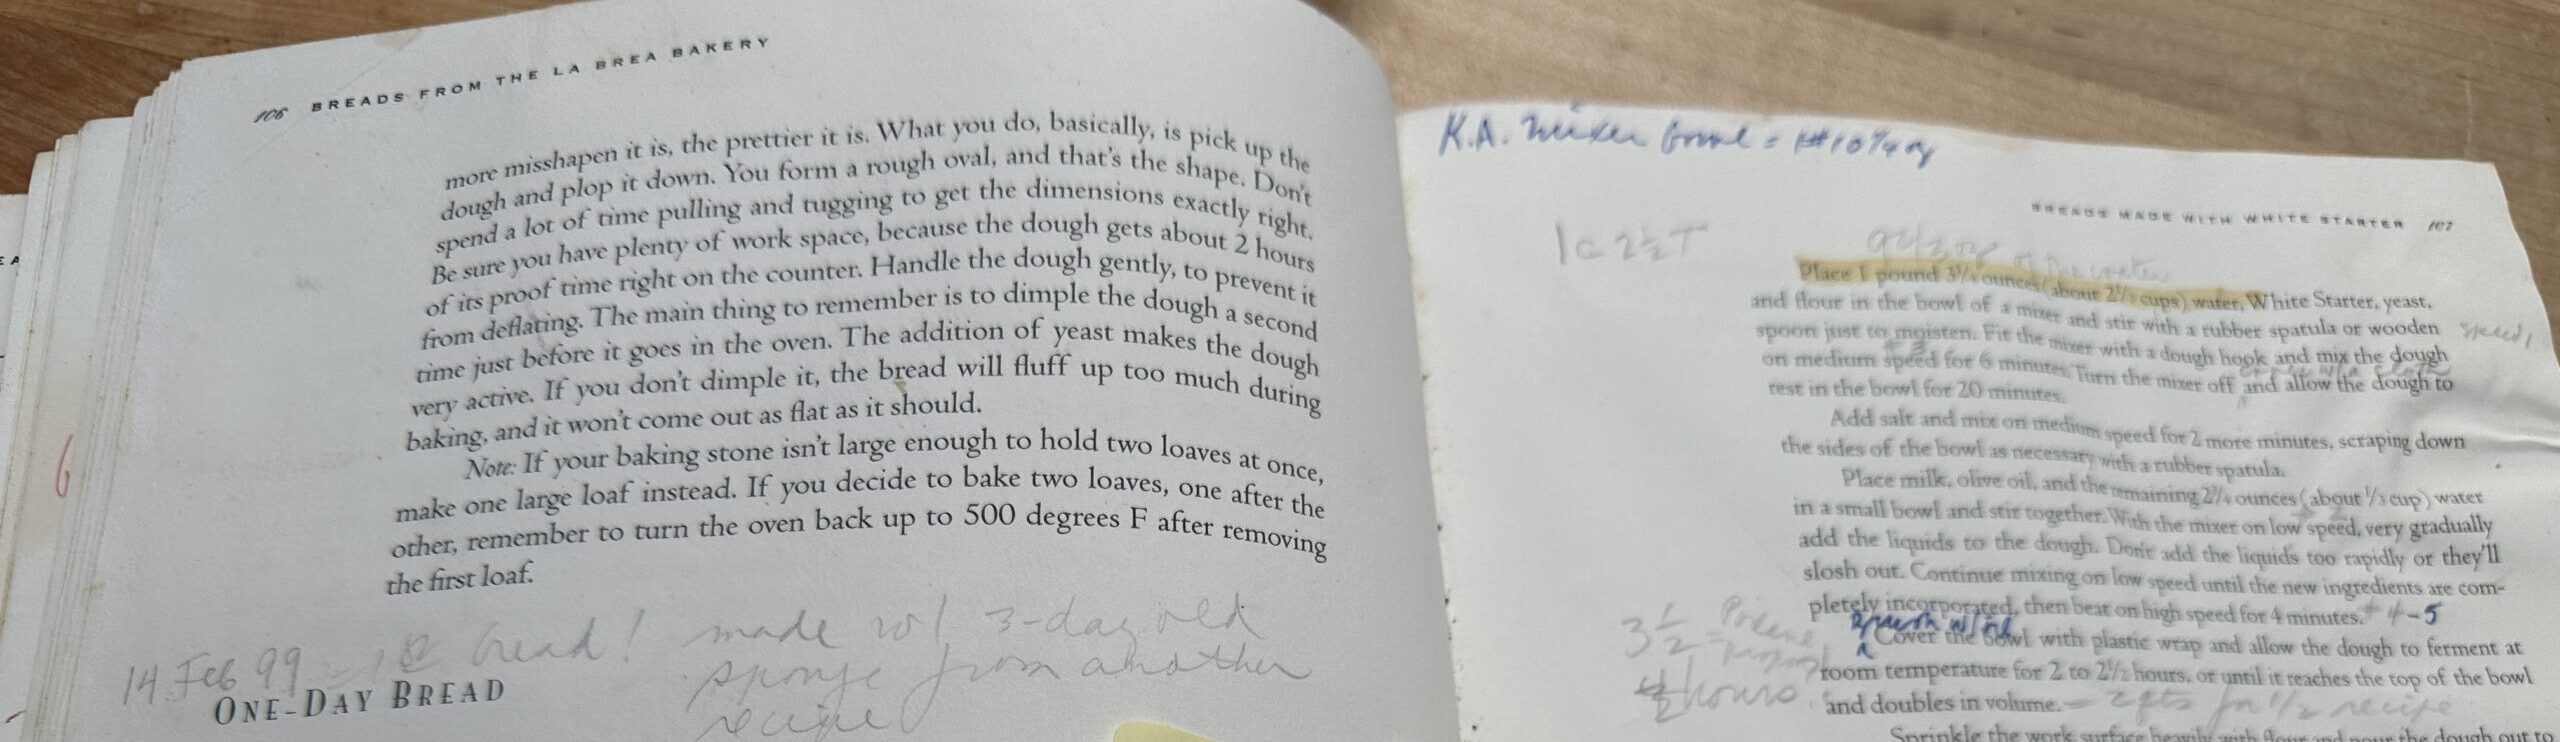 106 BREADS FROM THE LA BREA BAKERY
more misshapen it is, the prettier it is. What you do, basically, is pick up the
dough and plop it down. You form a rough oval, and that's the shape. Don't
spend a lot of time pulling and tugging to get the dimensions exactly right.
Be sure you have plenty of work space, because the dough gets about 2 hours
of its proof time right on the counter. Handle the dough gently, to prevent it
from deflating. The main thing to remember is to dimple the dough a second
time just before it goes in the oven. The addition of yeast makes the dough
very active. If you don't dimple it, the bread will fluff up too much during
baking, and it won't come out as flat as it should.
Note: If your baking stone isn't large enough to hold two loaves at once,
make one large loaf instead. If you decide to bake two loaves, one after the
other, remember to turn the oven back up to 500 degrees F after removing
the first loaf.
14 Feb 99 bread! made w/ 3-day old
sponge from another
recipe
ONE-DAY BREAD
6
K.A. mixer bowl = 1# 10 1/4 oz
BREADS MADE WITH WHITE STARTER 107
1c 2½ T
Place 1 pound 3 ounces (about 2 1/3 cups) water, White Starter, yeast,
and flour in the bowl of a mixer and stir with a rubber spatula or wooden
spoon just to moisten. Fit the mixer with a dough hook and mix the dough speed 1
on medium speed for 6 minutes. Turn the mixer off and allow the dough to
rest in the bowl for 20 minutes.
Add salt and mix on medium speed for 2 more minutes, scraping down
the sides of the bowl as necessary with a rubber spatula.
Place milk, olive oil, and the remaining 2 3/4 ounces (about 1/3 cup) water
in a small bowl and stir together. With the mixer on low speed, very gradually
add the liquids to the dough. Don't add the liquids too rapidly or they'll
slosh out. Continue mixing on low speed until the new ingredients are com-
pletely incorporated, then beat on high speed for 4 minutes. # 4-5
brush w/ oil
Cover the bowl with plastic wrap and allow the dough to ferment at
room temperature for 2 to 2 1/2 hours, or until it reaches the top of the bowl
and doubles in volume. - 2 qts for 1/2 recipe
3 ½
hours
Sprinkle the work surface heavily with flour and pour the dough out to